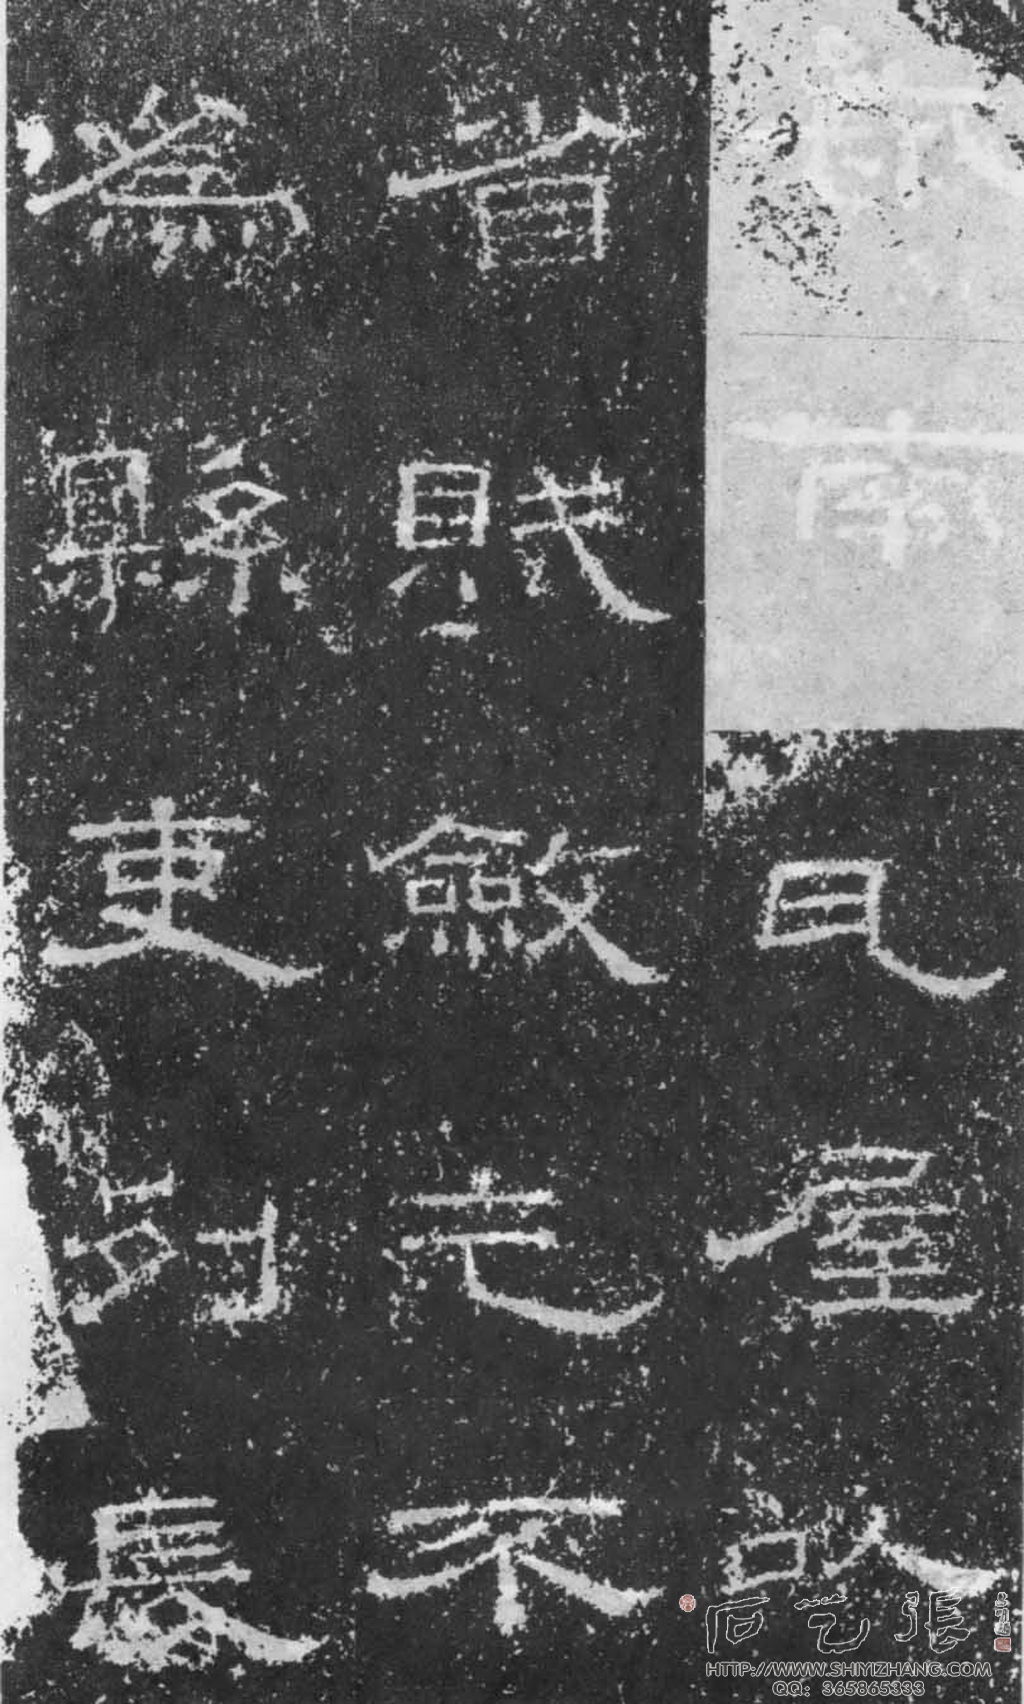 南瓦屋以
省賦斂乞不
為縣吏列長
張艺石
HTTP://WWW.SHIYIZHANG.COM
QQ: 365865333